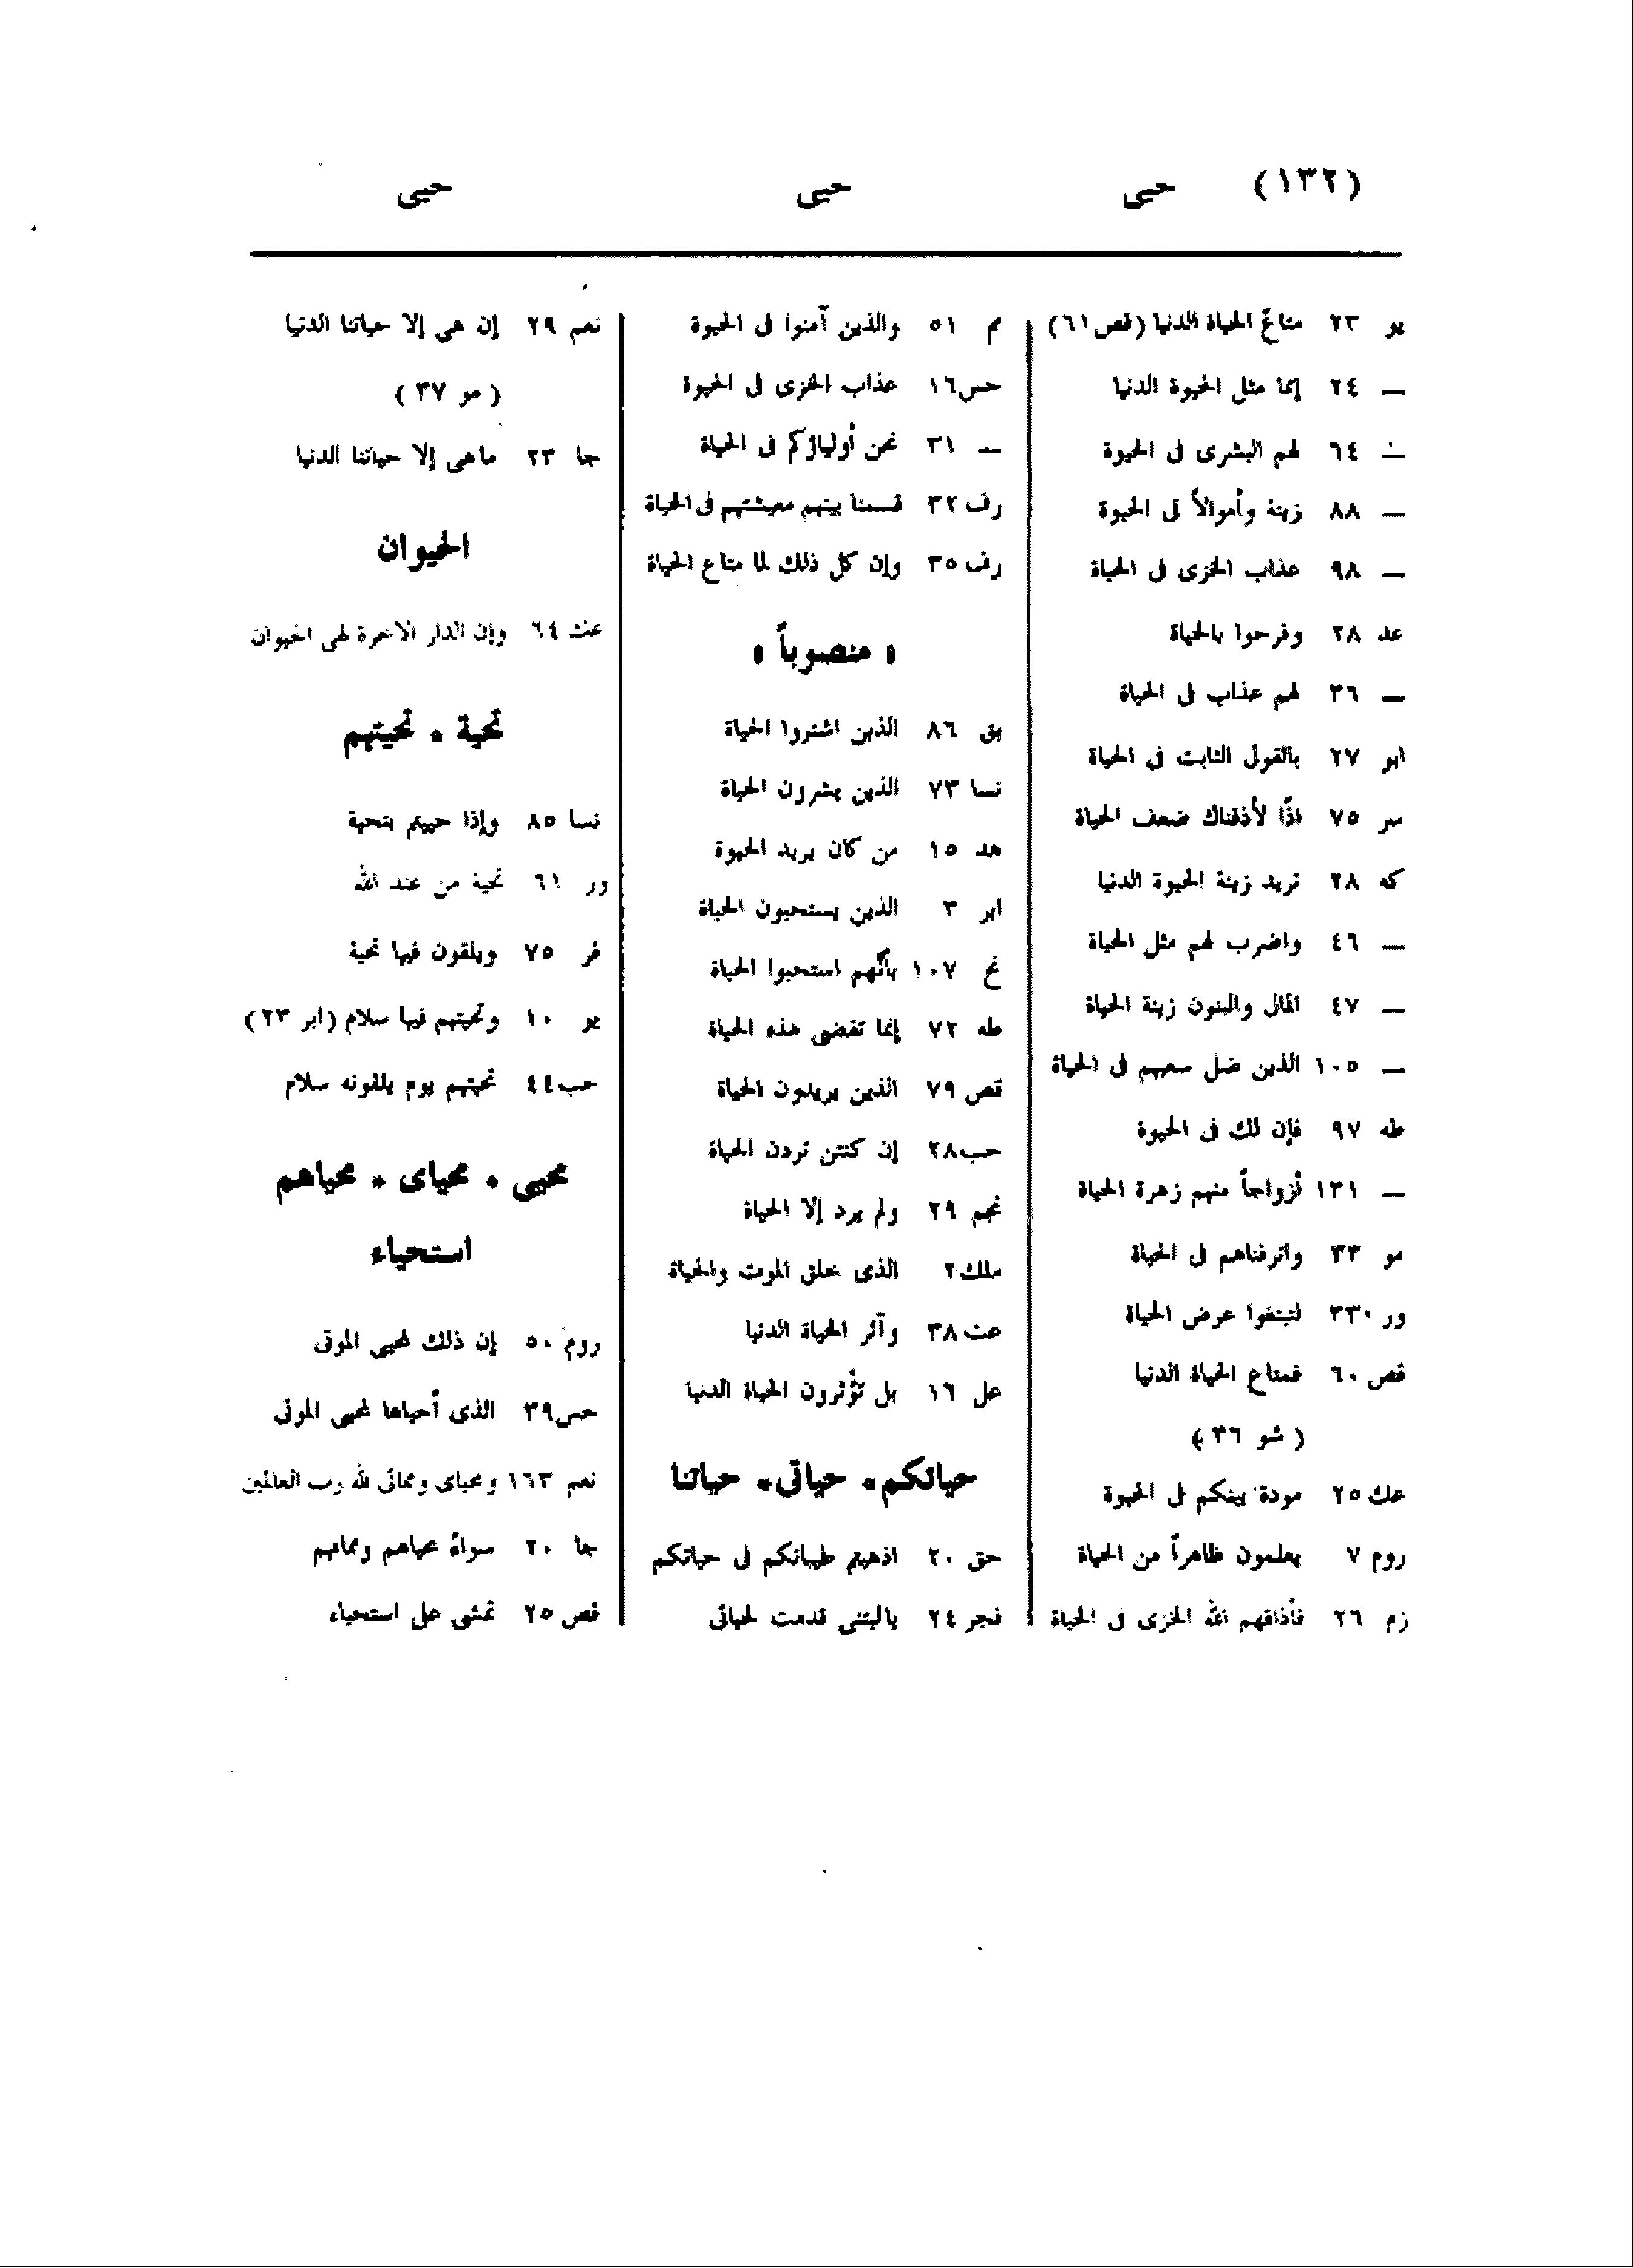 (١٣٢) حيى حيى حيى
يو ٢٣ متاعَ الحياة الدنيا (قص ٦١)
— ٢٤ إنما مثل الحيوة الدنيا
— ٦٤ لهم البشرى فى الحيوة
— ٨٨ زينة وأموالاً فى الحيوة
— ٩٨ عذاب الخزى فى الحياة
عد ٢٨ وفرحوا بالحياة
— ٣٦ لهم عذاب فى الحياة
ابر ٢٧ بالقول الثابت فى الحياة
سر ٧٥ اذًا لأذقناك ضعف الحياة
كه ٢٨ تريد زينة الحيوة الدنيا
— ٤٦ واضرب لهم مثل الحياة
— ٤٧ المال والبنون زينة الحياة
— ١٠٥ الذين ضل سعيهم فى الحياة
طه ٩٧ فإن لك فى الحيوة
— ١٣١ أزواجاً منهم زهرة الحياة
مو ٣٣ واترفناهم فى الحياة
ور ٣٣٠ لتبتغوا عرض الحياة
قص ٦٠ فمتاع الحياة الدنيا
(شو ٣٦)
عك ٢٥ مودة بينكم فى الحيوة
روم ٧ يعلمون ظاهراً من الحياة
زم ٢٦ فأذاقهم الله الخزى فى الحياة
م ٥١ والذين آمنوا فى الحيوة
حس ١٦ عذاب الخزى فى الحيوة
— ٣١ نحن أولياؤكم فى الحياة
رف ٣٢ قسمنا بينهم معيشتهم فى الحياة
رف ٣٥ وإن كل ذلك لما متاع الحياة
« منصوباً »
بق ٨٦ الذين اشتروا الحياة
نسا ٧٣ الذين يشرون الحياة
هد ١٥ من كان يريد الحيوة
ابر ٣ الذين يستحبون الحياة
نح ١٠٧ بأنَّهم استحبوا الحياة
طه ٧٢ إنما تقضى هذه الحياة
قص ٧٩ الذين يريدون الحياة
حب ٢٨ إن كنتن تردن الحياة
نجم ٢٩ ولم يرد إلا الحياة
ملك ٢ الذى خلق الموت والحياة
عت ٣٨ وآثر الحياة الدنيا
عل ١٦ بل تؤْثرون الحياة الدنيا
حياتكم • حياتى • حياتنا
حق ٢٠ اذهبتم طيباتكم فى حياتكم
فجر ٢٤ ياليتنى قدمت لحياتى
نعم ٢٩ إن هى إلا حياتنا الدنيا
(مو ٣٧)
جا ٢٣ ماهى إلا حياتنا الدنيا
الحيوان
عنك ٦٤ وإن الدار الآخرة لهى الحيوان
تحية • تحيتهم
نسا ٨٥ وإذا حييتم بتحية
ور ٦١ تحية من عند الله
فر ٧٥ ويلقون فيها تحية
يو ١٠ وتحيتهم فيها سلام (ابر ٢٣)
حب ٤٤ تحيتهم يوم يلقونه سلام
محيى • محياى • محياهم
استحياء
روم ٥٠ إن ذلك لمحيى الموتى
حس ٣٩ الذى أحياها لمحيى الموتى
نعم ١٦٣ ومحياى ومماتى لله رب العالمين
جا ٢٠ سواءً محياهم ومماتهم
قص ٢٥ تمشى على استحياء